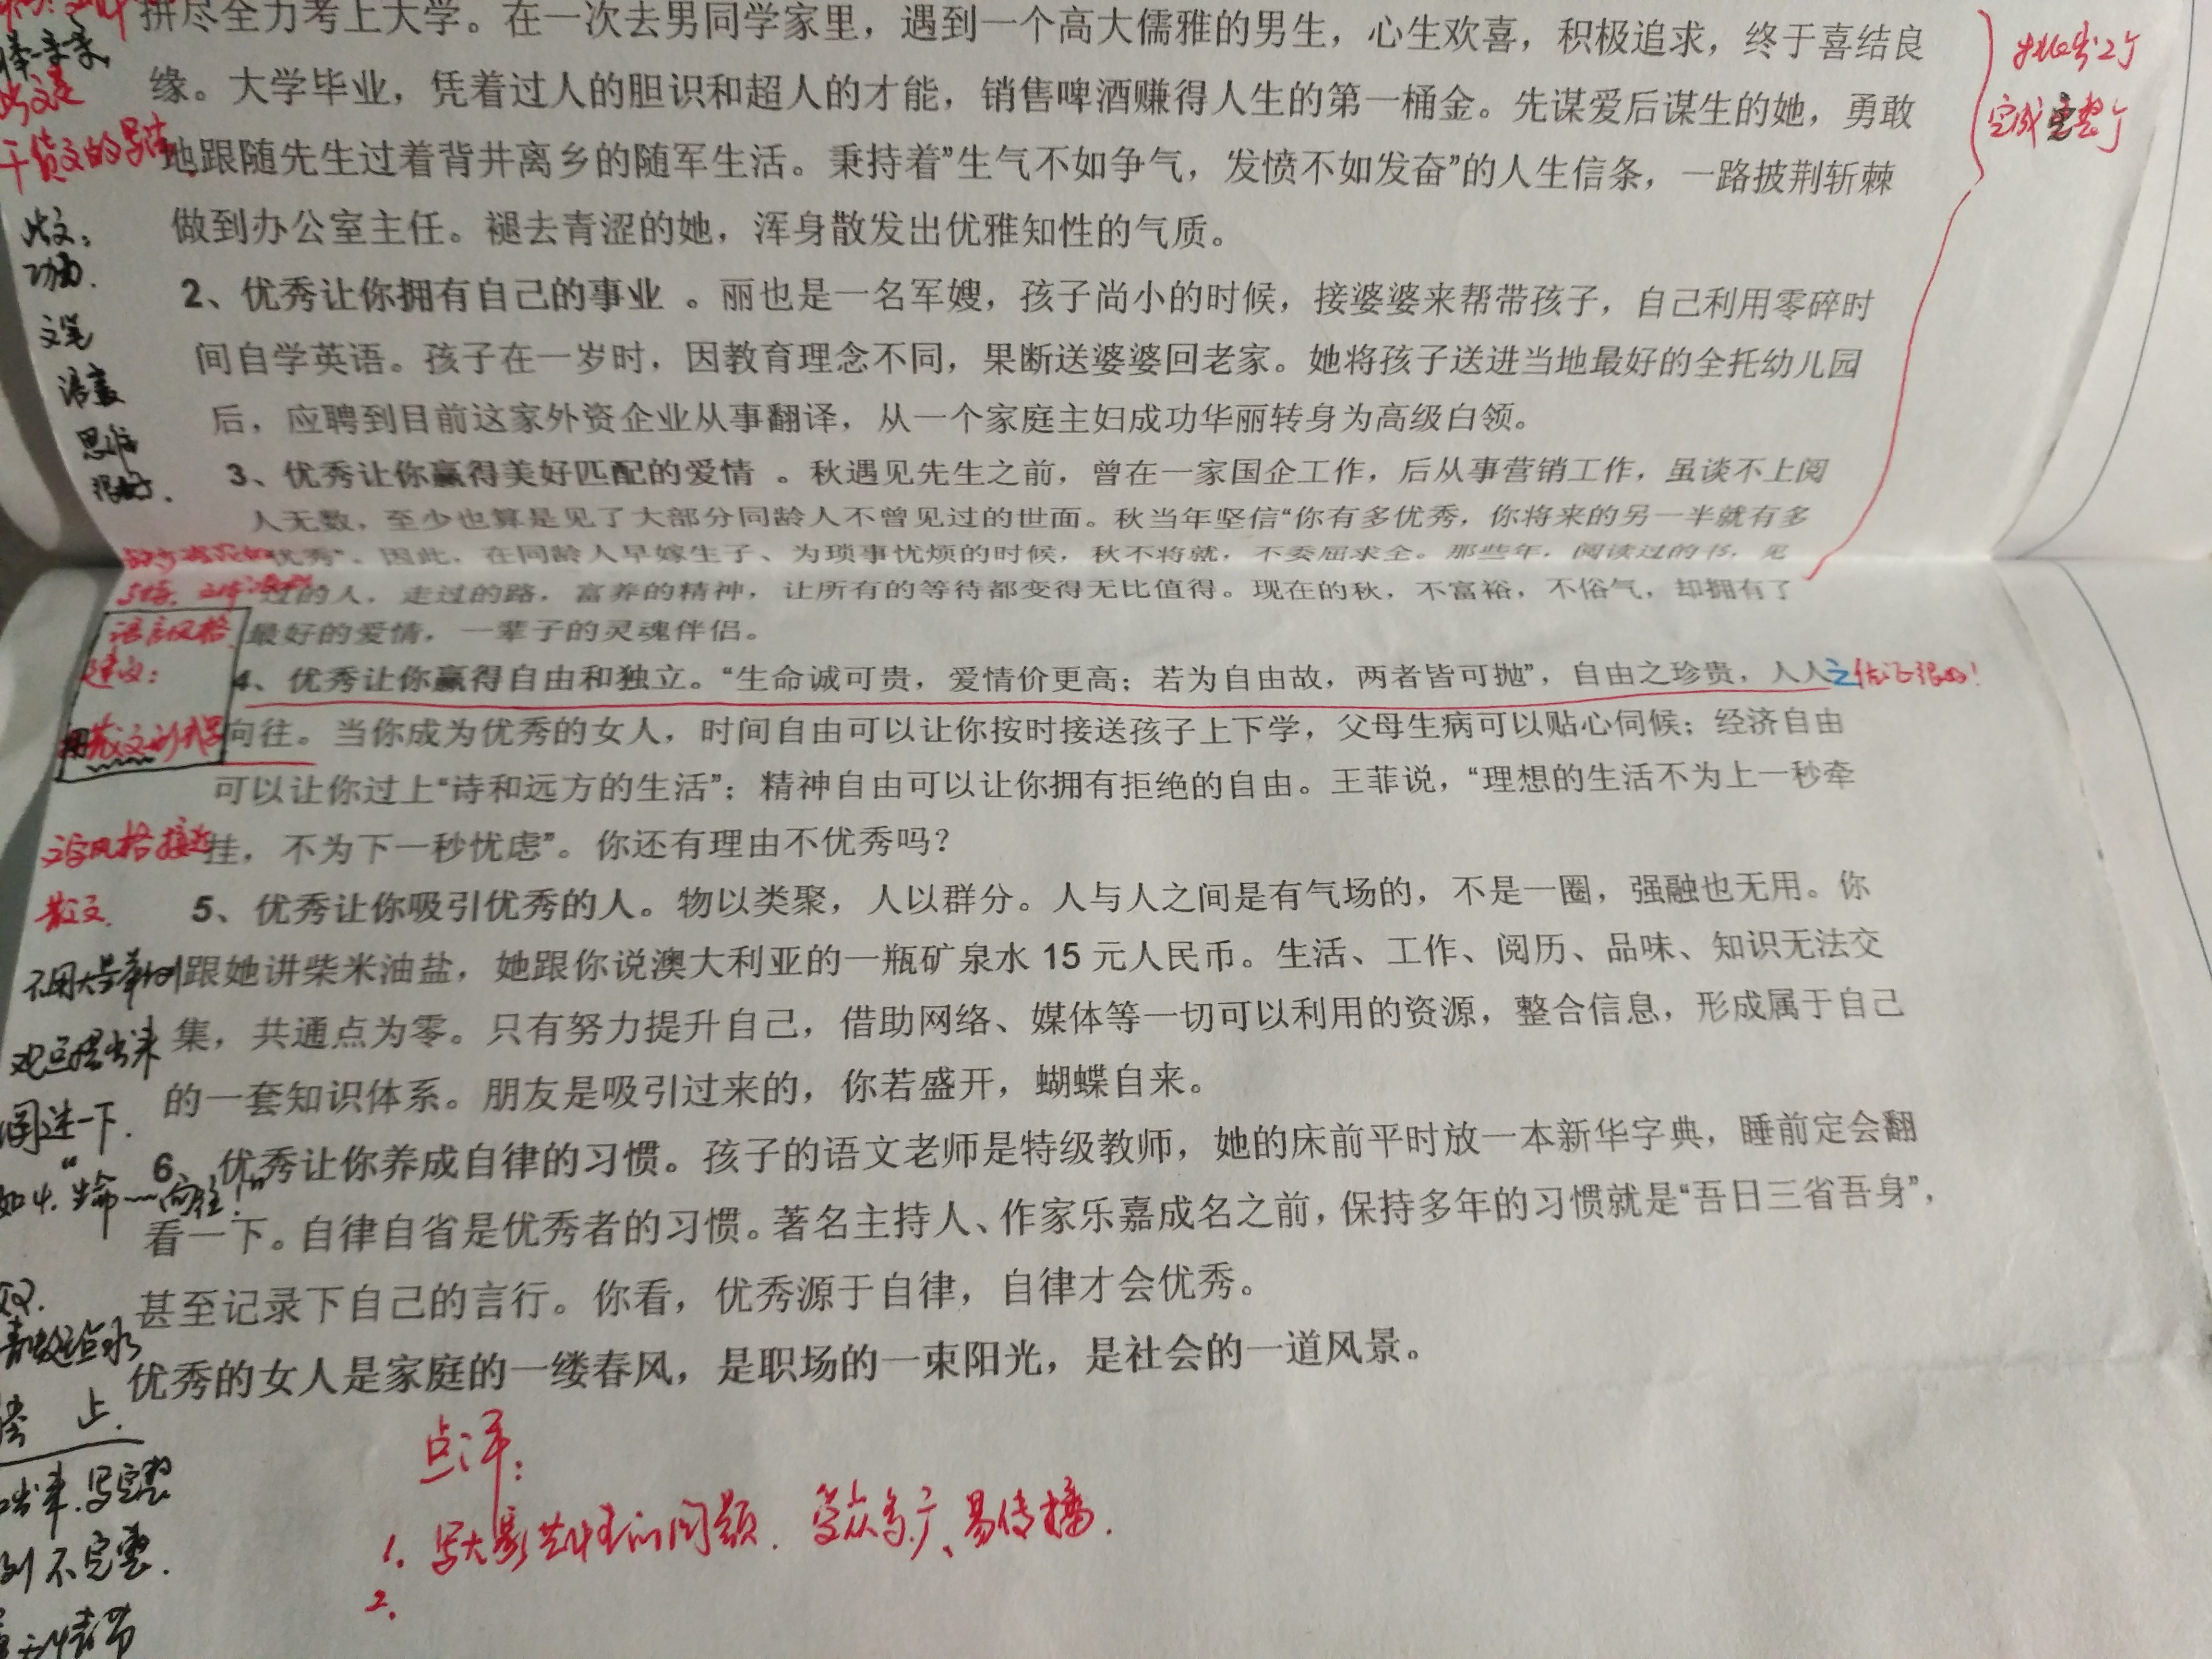 拼尽全力考上大学。在一次去男同学家里，遇到一个高大儒雅的男生，心生欢喜，积极追求，终于喜结良
缘。大学毕业，凭着过人的胆识和超人的才能，销售啤酒赚得人生的第一桶金。先谋爱后谋生的她，勇敢
地跟随先生过着背井离乡的随军生活。秉持着"生气不如争气，发愤不如发奋"的人生信条，一路披荆斩棘
做到办公室主任。褪去青涩的她，浑身散发出优雅知性的气质。
2、优秀让你拥有自己的事业 。丽也是一名军嫂，孩子尚小的时候，接婆婆来帮带孩子，自己利用零碎时
间自学英语。孩子在一岁时，因教育理念不同，果断送婆婆回老家。她将孩子送进当地最好的全托幼儿园
后，应聘到目前这家外资企业从事翻译，从一个家庭主妇成功华丽转身为高级白领。
3、优秀让你赢得美好匹配的爱情 。秋遇见先生之前，曾在一家国企工作，后从事营销工作，虽谈不上阅
人无数，至少也算是见了大部分同龄人不曾见过的世面。秋当年坚信“你有多优秀，你将来的另一半就有多
优秀”。因此，在同龄人早嫁生子、为琐事忧烦的时候，秋不将就，不委屈求全。那些年，阅读过的书，见
过的人，走过的路，富养的精神，让所有的等待都变得无比值得。现在的秋，不富裕，不俗气，却拥有了
最好的爱情，一辈子的灵魂伴侣。
4、优秀让你赢得自由和独立。“生命诚可贵，爱情价更高；若为自由故，两者皆可抛”，自由之珍贵，人人之
向往。当你成为优秀的女人，时间自由可以让你按时接送孩子上下学，父母生病可以贴心伺候；经济自由
可以让你过上“诗和远方的生活”；精神自由可以让你拥有拒绝的自由。王菲说，“理想的生活不为上一秒牵
挂，不为下一秒忧虑”。你还有理由不优秀吗？
5、优秀让你吸引优秀的人。物以类聚，人以群分。人与人之间是有气场的，不是一圈，强融也无用。你
跟她讲柴米油盐，她跟你说澳大利亚的一瓶矿泉水 15 元人民币。生活、工作、阅历、品味、知识无法交
集，共通点为零。只有努力提升自己，借助网络、媒体等一切可以利用的资源，整合信息，形成属于自己
的一套知识体系。朋友是吸引过来的，你若盛开，蝴蝶自来。
6、优秀让你养成自律的习惯。孩子的语文老师是特级教师，她的床前平时放一本新华字典，睡前定会翻
看一下。自律自省是优秀者的习惯。著名主持人、作家乐嘉成名之前，保持多年的习惯就是“吾日三省吾身”，
甚至记录下自己的言行。你看，优秀源于自律，自律才会优秀。
优秀的女人是家庭的一缕春风，是职场的一束阳光，是社会的一道风景。
点评：
1. 写大家共性的问题. 受众多、广、易传播.
2.
干货文的写法
此文：
功力.
文笔
语言
思维
很好.
语言风格
建议：
文字风格接近
散文.
不用大号举例
观点提出来
阐述一下.
如4. “生命——向往！”
写完整
不完整.
情节